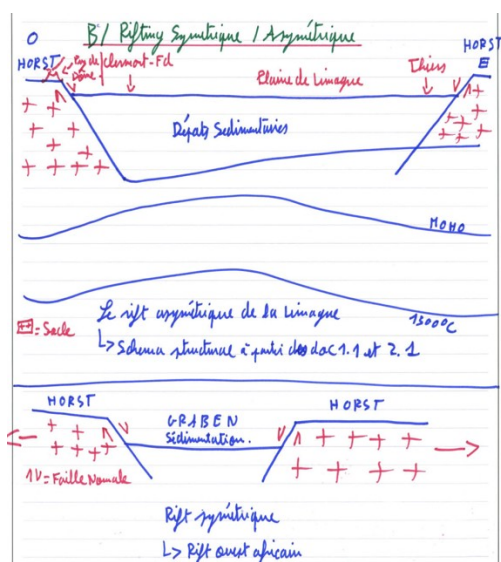 B/ Rifting Symétrique / Asymétrique
O
HORST
Puy de Dôme
Clermont-Fd
Plaine de Limagne
Thiers
HORST
E
Dépôts Sédimentaires
MOHO
1300°C
Le rift asymétrique de la Limagne
= Socle
L> Schema structural à partir des doc 1.1 et 2.1
HORST
GRABEN
Sédimentation.
HORST
= Faille Normale
Rift symétrique
L> Rift ouest africain